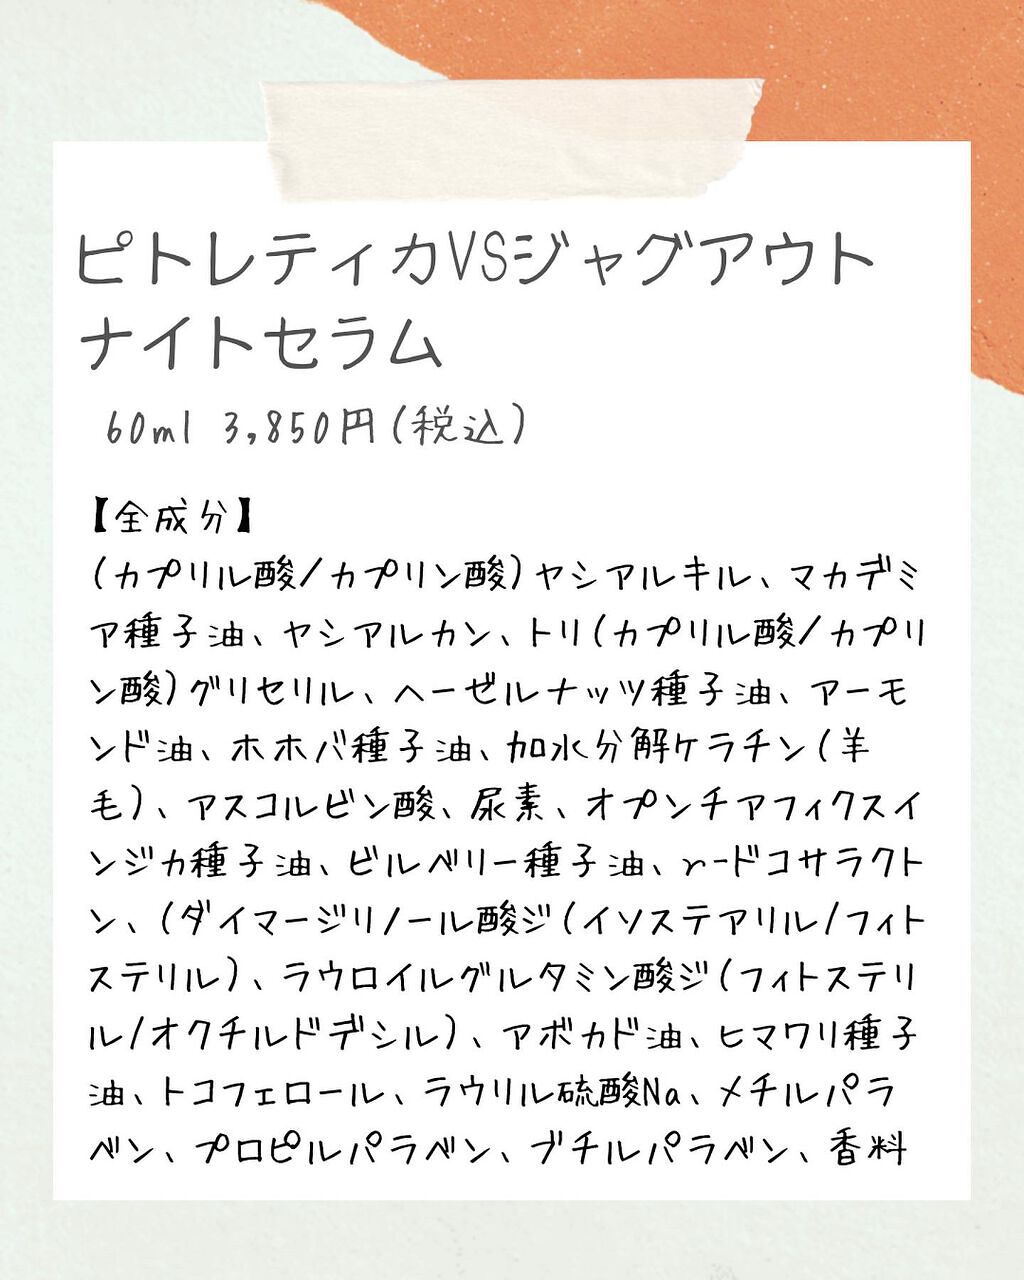 ピトレティカVSジャグアウト
ナイトセラム
60ml 3,850円(税込)
【全成分】
(カプリル酸/カプリン酸)ヤシアルキル、マカデミ
ア種子油、ヤシアルカン、トリ(カプリル酸/カプリ
ン酸)グリセリル、ヘーゼルナッツ種子油、アーモ
ンド油、ホホバ種子油、加水分解ケラチン(羊
毛)、アスコルビン酸、尿素、オプンチアフィクスイ
ンジカ種子油、ビルベリー種子油、γ-ドコサラクト
ン、(ダイマージリノール酸ジ(イソステアリル/フィト
ステリル)、ラウロイルグルタミン酸ジ(フィトステリ
ル/オクチルドデシル)、アボカド油、ヒマワリ種子
油、トコフェロール、ラウリル硫酸Na、メチルパラ
ベン、プロピルパラベン、ブチルパラベン、香料